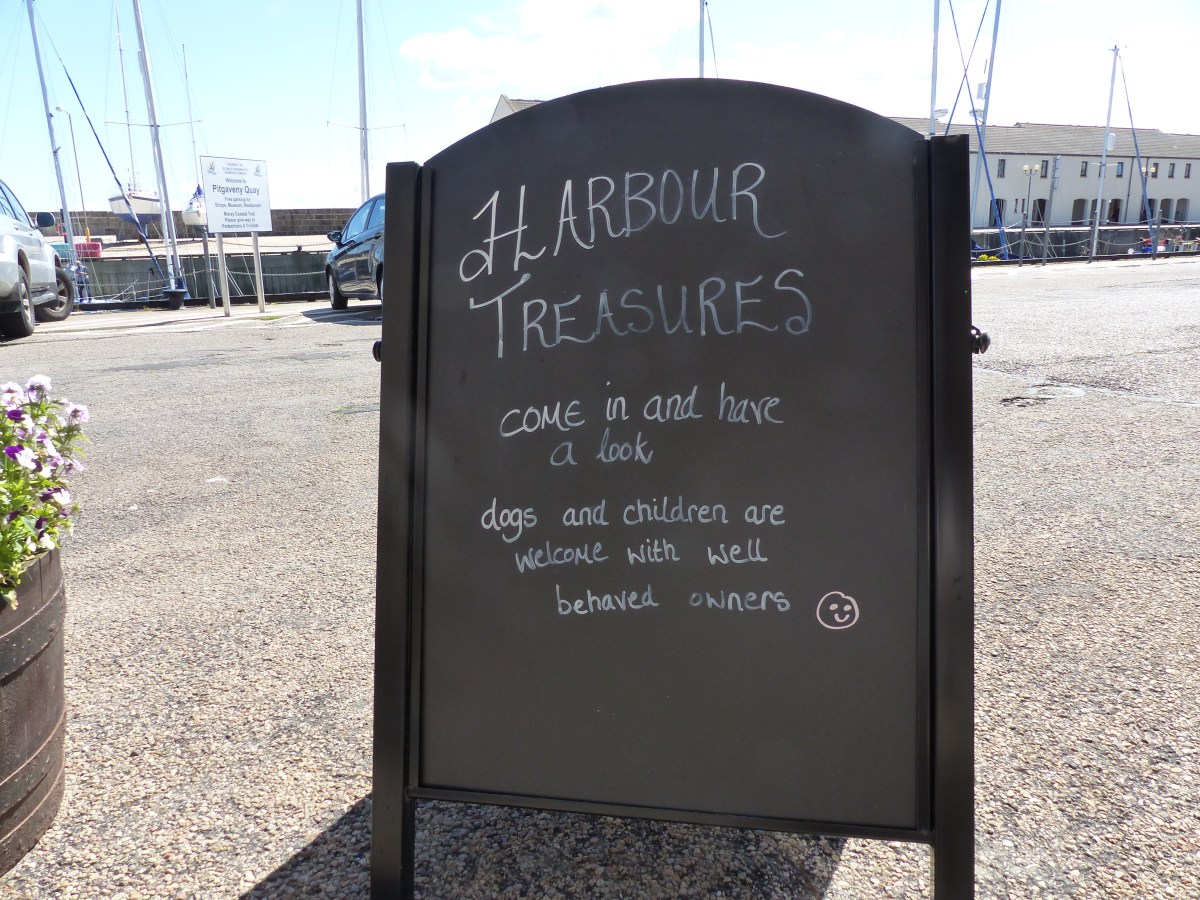 Welcome to
Pitgaveny Quay
Free parking for
Shops, Museum, Restaurant
Moray Coastal Trail
Please give way to
Pedestrians &
HARBOUR
TREASURES
COME in and have
a look
dogs and children are
welcome with well
behaved owners